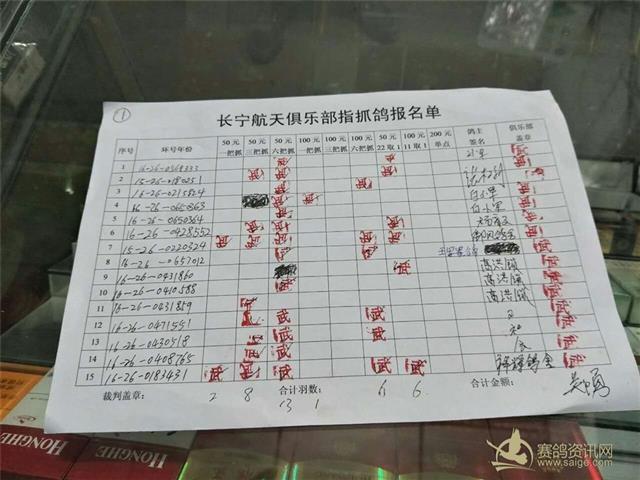 ①
长宁航天俱乐部指抓鸽报名单
序号 环号年份 50元一把抓 50元三把抓 50元六把抓 100元一把抓 100元三把抓 100元六把抓 50元22取1 100元11取1 200元单点 鸽主签名 俱乐部盖章
1 16-26-0568333 武 武 武
2 15-26-0180251 武 武 武
3 16-26-0215824 武 武
4 16-26-0650363 武 武 白小军 武
5 16-26-0650364 武 武 白小军 武
6 16-26-0428552 武 武 武 武 武
7 15-26-0220324 武 武 武 武 武
8 16-26-0657012 武
9 16-26-0431860 武 高洪 武
10 16-26-0410588 武 高洪 武
11 16-26-0431859 武 高洪 武
12 16-26-0471551 武 武 武 武
13 16-26-0430518 武 武 武
14 16-26-0408765 武 武
15 16-26-0183431 武 武 武 武 武 武
裁判盖章: 2 8 13 合计羽数: 1 6 6 合计金额:
HONGHE
HONGHE
赛鸽资讯网
www.saige.com